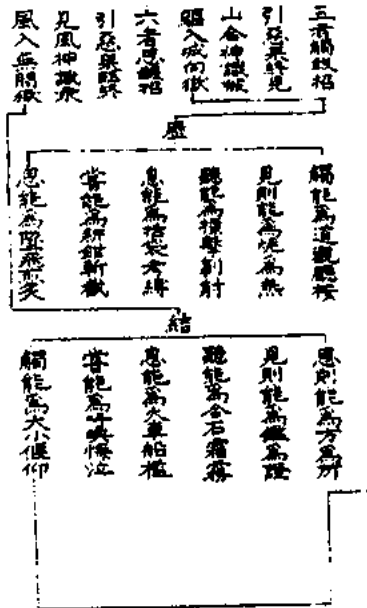 五者觸報招
引惡果終見
山合神識城
驅入城何獄
六者思報招
引惡果臨終
見風神識承
風入無間獄
歷
觸能為道觀廳按
見則能為燒為熱
聽能為橦擊剚射
息能為括袋考縛
嘗能為耕鉗斬截
思能為墜飛煎炙
結
思則能為方為所
見則能為鑑為證
聽能為合石霜霧
息能為大車船檻
嘗能為呼喚悔泣
觸能為大小偃仰